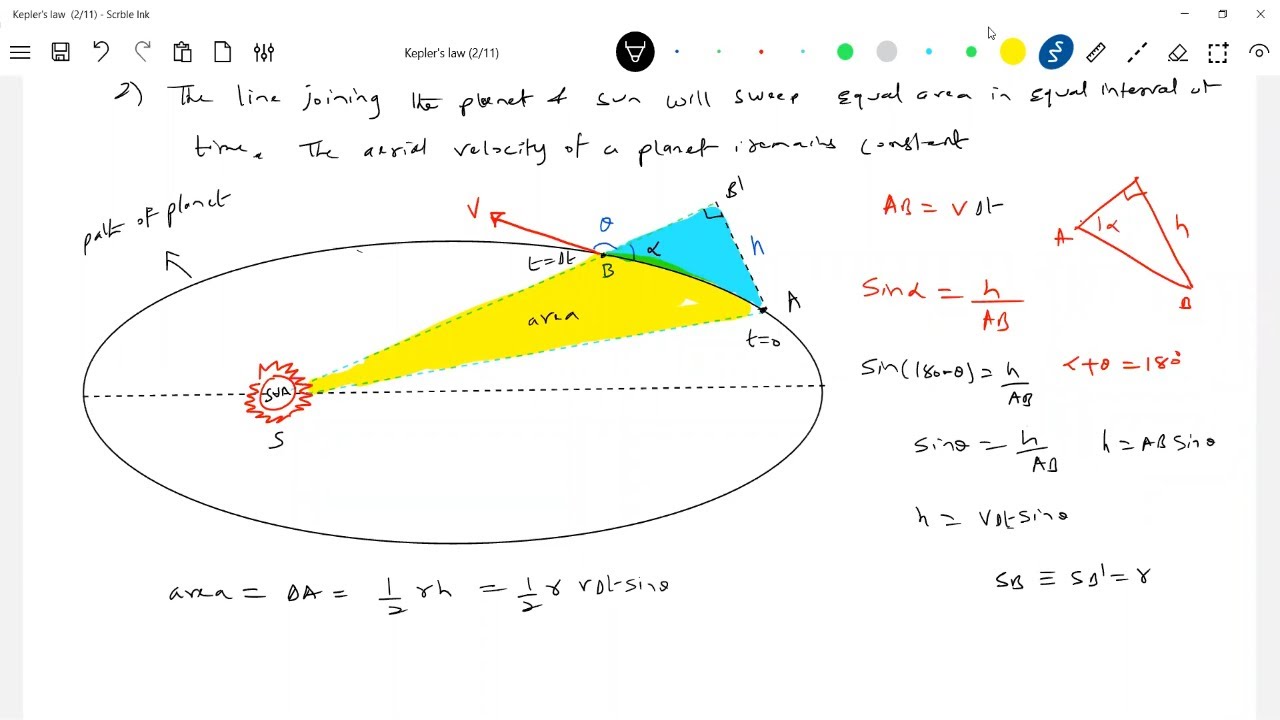 Kepler's law (2/11) - Scrble Ink
Kepler's law (2/11)
2) The line joining the planet & sun will sweep equal area in equal interval of
time. The aerial velocity of a planet remains constant
path of planet
V
θ
B'
α
h
t=Δt
B
area
A
t=0
SUN
S
AB = VΔt
A
α
h
B
Sinα = h/AB
Sin(180-θ) = h/AB
α+θ = 180°
Sinθ = h/AB
h = AB Sinθ
h = VΔt Sinθ
SB ≡ SB' = r
area = ΔA = 1/2 rh = 1/2 r VΔt sinθ